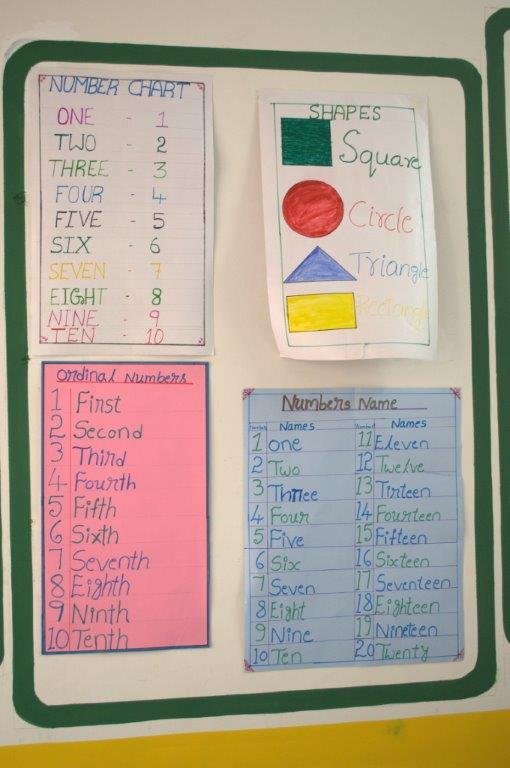 NUMBER CHART
ONE - 1
TWO - 2
THREE - 3
FOUR - 4
FIVE - 5
SIX - 6
SEVEN - 7
EIGHT - 8
NINE - 9
TEN - 10
SHAPES
Square
Circle
Triangle
Rectangle
Ordinal Numbers
1 First
2 Second
3 Third
4 Fourth
5 Fifth
6 Sixth
7 Seventh
8 Eighth
9 Ninth
10 Tenth
Numbers Name
Names Names
1 one 11 Eleven
2 Two 12 Twelve
3 Three 13 Tirteen
4 Four 14 Fourteen
5 Five 15 Fifteen
6 Six 16 Sixteen
7 Seven 17 Seventeen
8 Eight 18 Eighteen
9 Nine 19 Nineteen
10 Ten 20 Twenty